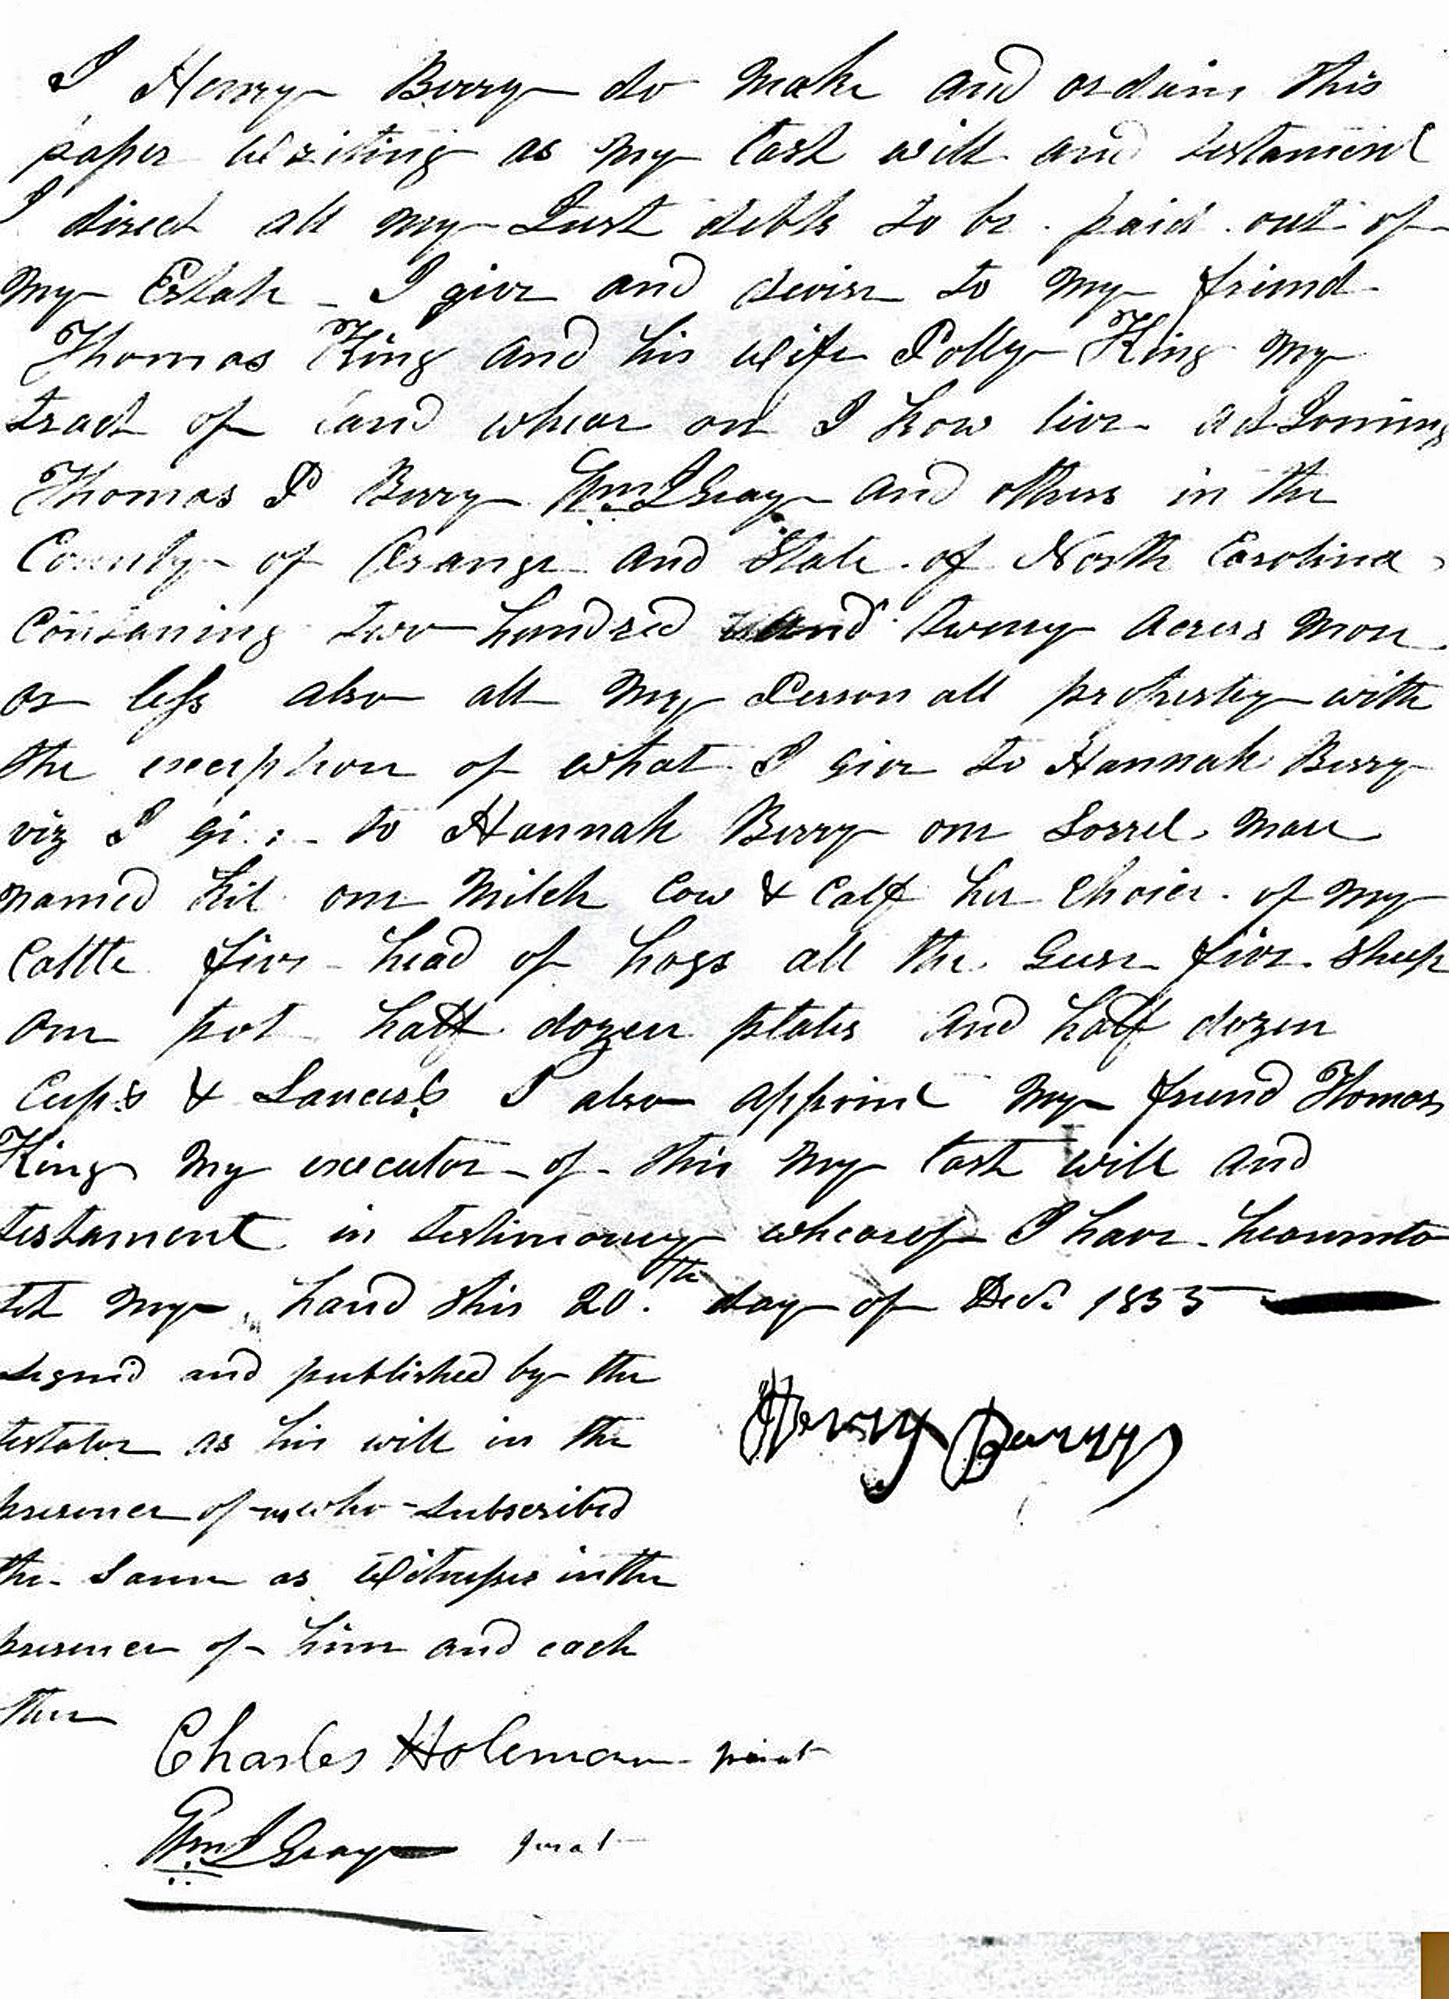 I Henry Berry do make and ordain this
paper writing as my last will and testament
I direct all my Just debts to be paid out of
my Estate - I give and devise to my friend
Thomas King and his wife Polly King my
tract of land whear on I now live adJoining
Thomas P Berry Wm J Gray and others in the
County of Orange and State of North Carolina
Containing two hundred and twenty acres more
or less also all my Person all property with
the exception of what I give to Hannah Berry
viz I gi to Hannah Berry one Sorrel mare
named kit one milch Cow & Calf her choice of my
Cattle five head of hogs all the Geese five sheep
one pot half dozen plates and half dozen
Cups & Saucers I also appoint my friend Thomas
King my executor of this my last will and
testament in testimony wheareof I have hearunto
set my hand this 20th day of Dec. 1855
Signed and published by the
testator as his will in the
presence of us who subscribed
the same as witnesses in the
presence of him and each
Henry Berry
Charles Holeman jurat
Wm J Gray jurat